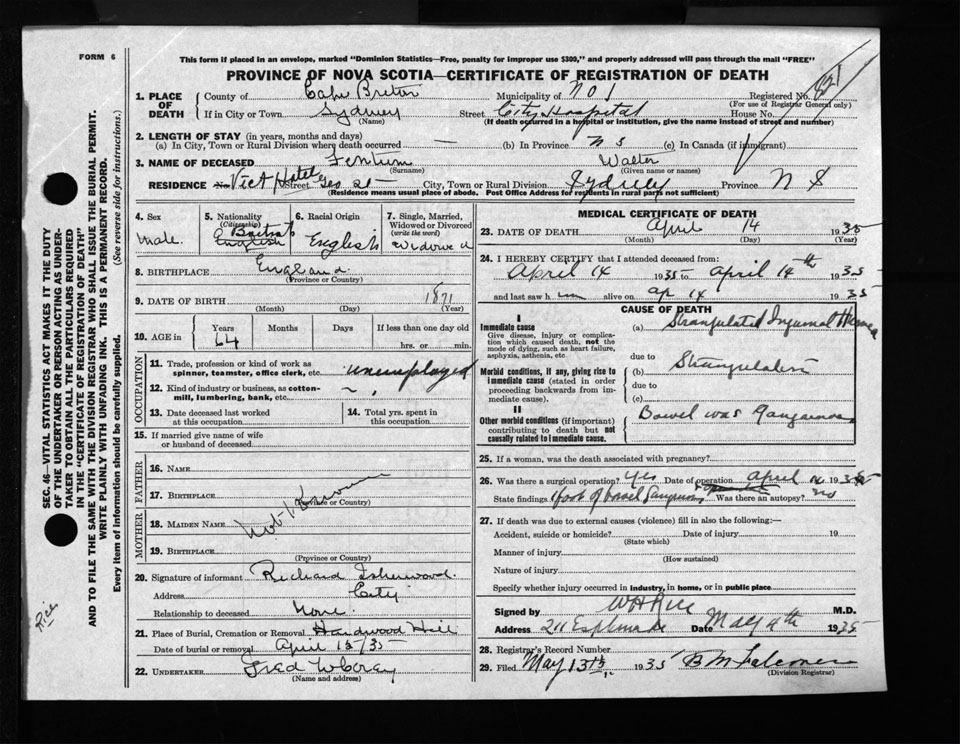 FORM 6
This form if placed in an envelope, marked "Dominion Statistics—Free, penalty for improper use $300," and properly addressed will pass through the mail "FREE"
PROVINCE OF NOVA SCOTIA—CERTIFICATE OF REGISTRATION OF DEATH
1. PLACE OF DEATH { County of Cape Breton Municipality of No 1 Registered No.
(For use of Registrar General only)
If in City or Town Sydney Street City Hospital House No.
(Name) (If death occurred in a hospital or institution, give the name instead of street and number)
2. LENGTH OF STAY (in years, months and days)
(a) In City, Town or Rural Division where death occurred — (b) In Province N S (c) In Canada (if immigrant)
3. NAME OF DECEASED Walter
(Surname) (Given name or names)
RESIDENCE No. Vict Hotel Street Geo St City, Town or Rural Division Sydney Province N S
(Residence means usual place of abode. Post Office Address for residents in rural parts not sufficient)
4. Sex
male
5. Nationality
(Citizenship)
British
English
6. Racial Origin
English
7. Single, Married, Widowed or Divorced
(write the word)
widowed
8. BIRTHPLACE England
(Province or Country)
9. DATE OF BIRTH 1871
(Month) (Day) (Year)
10. AGE in { Years Months Days If less than one day old
64 hrs. or min.
OCCUPATION
11. Trade, profession or kind of work as
spinner, teamster, office clerk, etc. unemployed
12. Kind of industry or business, as cotton-
mill, lumbering, bank, etc.
13. Date deceased last worked
at this occupation
14. Total yrs. spent in
this occupation
15. If married give name of wife
or husband of deceased
FATHER
16. NAME
17. BIRTHPLACE
(Province or Country)
Not Known
MOTHER
18. MAIDEN NAME
19. BIRTHPLACE
(Province or Country)
20. Signature of informant Richard Isherwood
Address City
Relationship to deceased None
21. Place of Burial, Cremation or Removal Hardwood Hill
Date of burial or removal April 15/35
22. UNDERTAKER Fred
(Name and address)
MEDICAL CERTIFICATE OF DEATH
23. DATE OF DEATH April 14 1935
(Month) (Day) (Year)
24. I HEREBY CERTIFY that I attended deceased from:
April 14 1935 to April 14th 1935
and last saw h im alive on Ap 14 1935
CAUSE OF DEATH
I
Immediate cause
Give disease, injury or complication which caused death, not the mode of dying, such as heart failure, asphyxia, asthenia, etc.
(a) Strangulated Inguinal Hernia
due to
Morbid conditions, if any, giving rise to immediate cause (stated in order proceeding backwards from immediate cause).
(b) Strangulation
due to
(c)
II
Other morbid conditions (if important) contributing to death but not causally related to immediate cause.
Bowel was Gangrenous
25. If a woman, was the death associated with pregnancy?
26. Was there a surgical operation? Yes Date of operation April 1935
State findings of bowel Was there an autopsy? no
27. If death was due to external causes (violence) fill in also the following:—
Accident, suicide or homicide? Date of injury 19
(State which)
Manner of injury
(How sustained)
Nature of injury
Specify whether injury occurred in industry, in home, or in public place
Signed by W H Rice M.D.
Address 211 Esplanade Date May 4th 1935
28. Registrar's Record Number
29. Filed May 13th 1935 B M Falconer
(Division Registrar)
SEC. 46—VITAL STATISTICS ACT MAKES IT THE DUTY
OF THE UNDERTAKER OR PERSON ACTING AS UNDER-
TAKER TO OBTAIN ALL THE PARTICULARS REQUIRED
IN THE "CERTIFICATE OF REGISTRATION OF DEATH"
AND TO FILE THE SAME WITH THE DIVISION REGISTRAR WHO SHALL ISSUE THE BURIAL PERMIT.
WRITE PLAINLY WITH UNFADING INK. THIS IS A PERMANENT RECORD.
Every item of information should be carefully supplied. (See reverse side for instructions.)
Rice